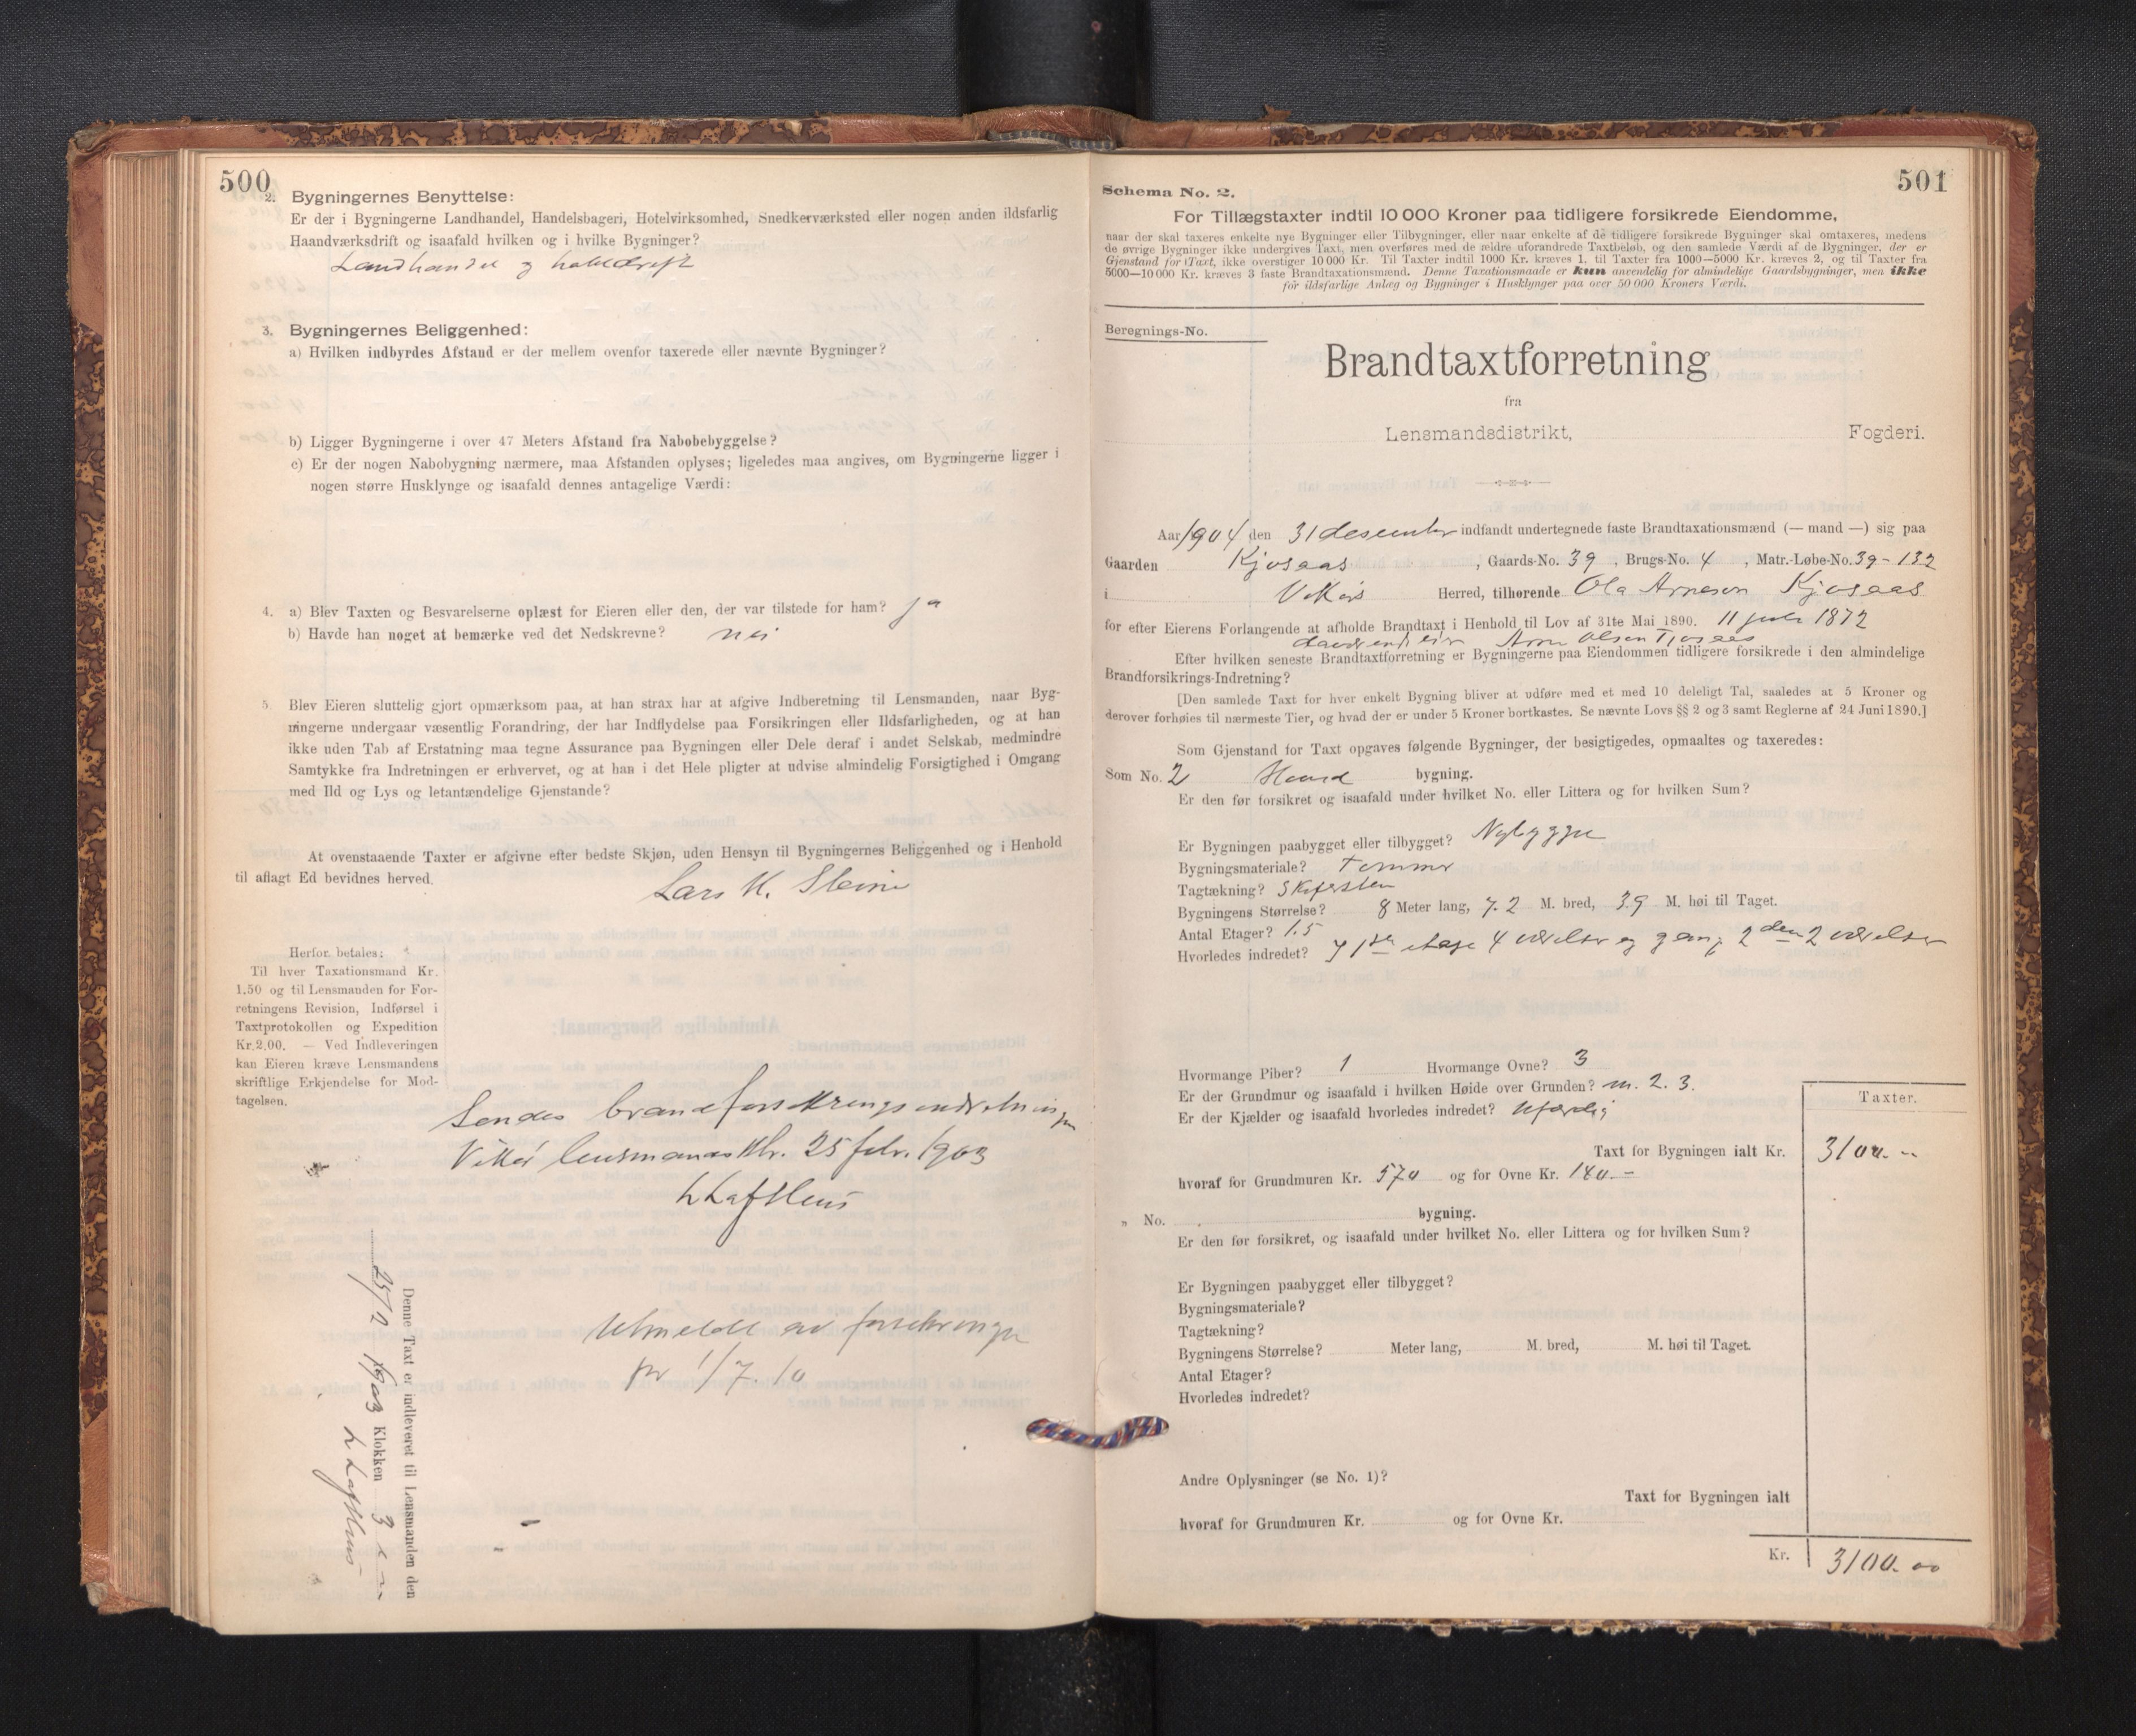 500
2. Bygningernes Benyttelse:
Er der i Bygningerne Landhandel, Handelsbageri, Hotelvirksomhed, Snedkerværksted eller nogen anden ildsfarlig
Haandværksdrift og isaafald hvilken og i hvilke Bygninger?
Landhandel og hoteldrift
3. Bygningernes Beliggenhed:
a) Hvilken indbyrdes Afstand er der mellem ovenfor taxerede eller nævnte Bygninger?
b) Ligger Bygningerne i over 47 Meters Afstand fra Nabobebyggelse?
c) Er der nogen Nabobygning nærmere, maa Afstanden oplyses; ligeledes maa angives, om Bygningerne ligger i
nogen større Husklynge og isaafald dennes antagelige Værdi:
4. a) Blev Taxten og Besvarelserne oplæst for Eieren eller den, der var tilstede for ham? ja
b) Havde han noget at bemærke ved det Nedskrevne? nei
5. Blev Eieren sluttelig gjort opmærksom paa, at han strax har at afgive Indberetning til Lensmanden, naar Byg-
ningerne undergaar væsentlig Forandring, der har Indflydelse paa Forsikringen eller Ildsfarligheden, og at han
ikke uden Tab af Erstatning maa tegne Assurance paa Bygningen eller Dele deraf i andet Selskab, medmindre
Samtykke fra Indretningen er erhvervet, og at han i det Hele pligter at udvise almindelig Forsigtighed i Omgang
med Ild og Lys og letantændelige Gjenstande?
At ovenstaaende Taxter er afgivne efter bedste Skjøn, uden Hensyn til Bygningernes Beliggenhed og i Henhold
til aflagt Ed bevidnes herved.
Lars H. Steine
Herfor betales:
Til hver Taxationsmand Kr.
1.50 og til Lensmanden for For-
retningens Revision, Indførsel i
Taxtprotokollen og Expedition
Kr. 2.00. — Ved Indleveringen
kan Eieren kræve Lensmandens
skriftlige Erkjendelse for Mod-
tagelsen.
Sendes brandforsikringsindretningen
Vikør lensmanas ktr. 25 febr. 1903
L Lofthus
Utmeldt av forsikringen
pr 1/7. 10
Denne Taxt er indleveret til Lensmanden den
25/2 1903 Klokken 3 e m
L Lofthus
501
Schema No. 2.
For Tillægstaxter indtil 10 000 Kroner paa tidligere forsikrede Eiendomme,
naar der skal taxeres enkelte nye Bygninger eller Tilbygninger, eller naar enkelte af de tidligere forsikrede Bygninger skal omtaxeres, medens
de øvrige Bygninger ikke undergives Taxt, men overføres med de ældre uforandrede Taxtbeløb, og den samlede Værdi af de Bygninger, der er
Gjenstand for Taxt, ikke overstiger 10 000 Kr. Til Taxter indtil 1000 Kr. kræves 1, til Taxter fra 1000—5000 Kr. kræves 2, og til Taxter fra
5000—10 000 Kr. kræves 3 faste Brandtaxationsmænd. Denne Taxationsmaade er kun anvendelig for almindelige Gaardsbygninger, men ikke
for ildsfarlige Anlæg og Bygninger i Husklynger paa over 50 000 Kroners Værdi.
Beregnings-No.
Brandtaxtforretning
fra
Lensmandsdistrikt, Fogderi.
Aar 1904 den 31 desember indfandt undertegnede faste Brandtaxationsmænd (— mand —) sig paa
Gaarden Kjosaas, Gaards-No. 39, Brugs-No. 4, Matr.-Løbe-No. 39-132
i Vikør Herred, tilhørende Ola Arneson Kjosaas
for efter Eierens Forlangende at afholde Brandtaxt i Henhold til Lov af 31te Mai 1890. 11 juli 1872
Arne Olsen Kjosaas
Efter hvilken seneste Brandtaxtforretning er Bygningerne paa Eiendommen tidligere forsikrede i den almindelige
Brandforsikrings-Indretning?
[Den samlede Taxt for hver enkelt Bygning bliver at udføre med et med 10 deleligt Tal, saaledes at 5 Kroner og
derover forhøies til nærmeste Tier, og hvad der er under 5 Kroner bortkastes. Se nævnte Lovs §§ 2 og 3 samt Reglerne af 24 Juni 1890.]
Som Gjenstand for Taxt opgaves følgende Bygninger, der besigtigedes, opmaaltes og taxeredes:
Som No. 2 Hoved bygning.
Er den før forsikret og isaafald under hvilket No. eller Littera og for hvilken Sum?
Er Bygningen paabygget eller tilbygget? Nybygge
Bygningsmateriale? Tømmer
Tagtækning? Skifersten
Bygningens Størrelse? 8 Meter lang, 7.2 M. bred, 3.9 M. høi til Taget.
Antal Etager? 1.5
Hvorledes indredet? I 1ste etage 4 værelser og gang, 2den 2 værelser
Hvormange Piber? 1 Hvormange Ovne? 3
Er der Grundmur og isaafald i hvilken Høide over Grunden? m. 2. 3.
Er der Kjælder og isaafald hvorledes indredet? Ufærdig
Taxter.
Taxt for Bygningen ialt Kr. 3100.--
hvoraf for Grundmuren Kr. 570 og for Ovne Kr. 140.—
„ No. bygning.
Er den før forsikret, og isaafald under hvilket No. eller Littera og for hvilken Sum?
Er Bygningen paabygget eller tilbygget?
Bygningsmateriale?
Tagtækning?
Bygningens Størrelse? Meter lang, M. bred, M. høi til Taget.
Antal Etager?
Hvorledes indredet?
Andre Oplysninger (se No. 1)?
Taxt for Bygningen ialt
hvoraf for Grundmuren Kr. og for Ovne Kr.
Kr. 3100.00